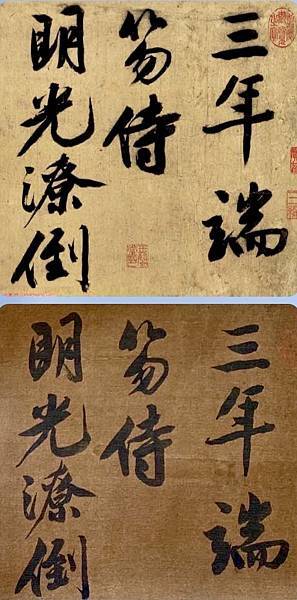 三年端
笏侍
明光潦倒
三年端
笏侍
明光潦倒